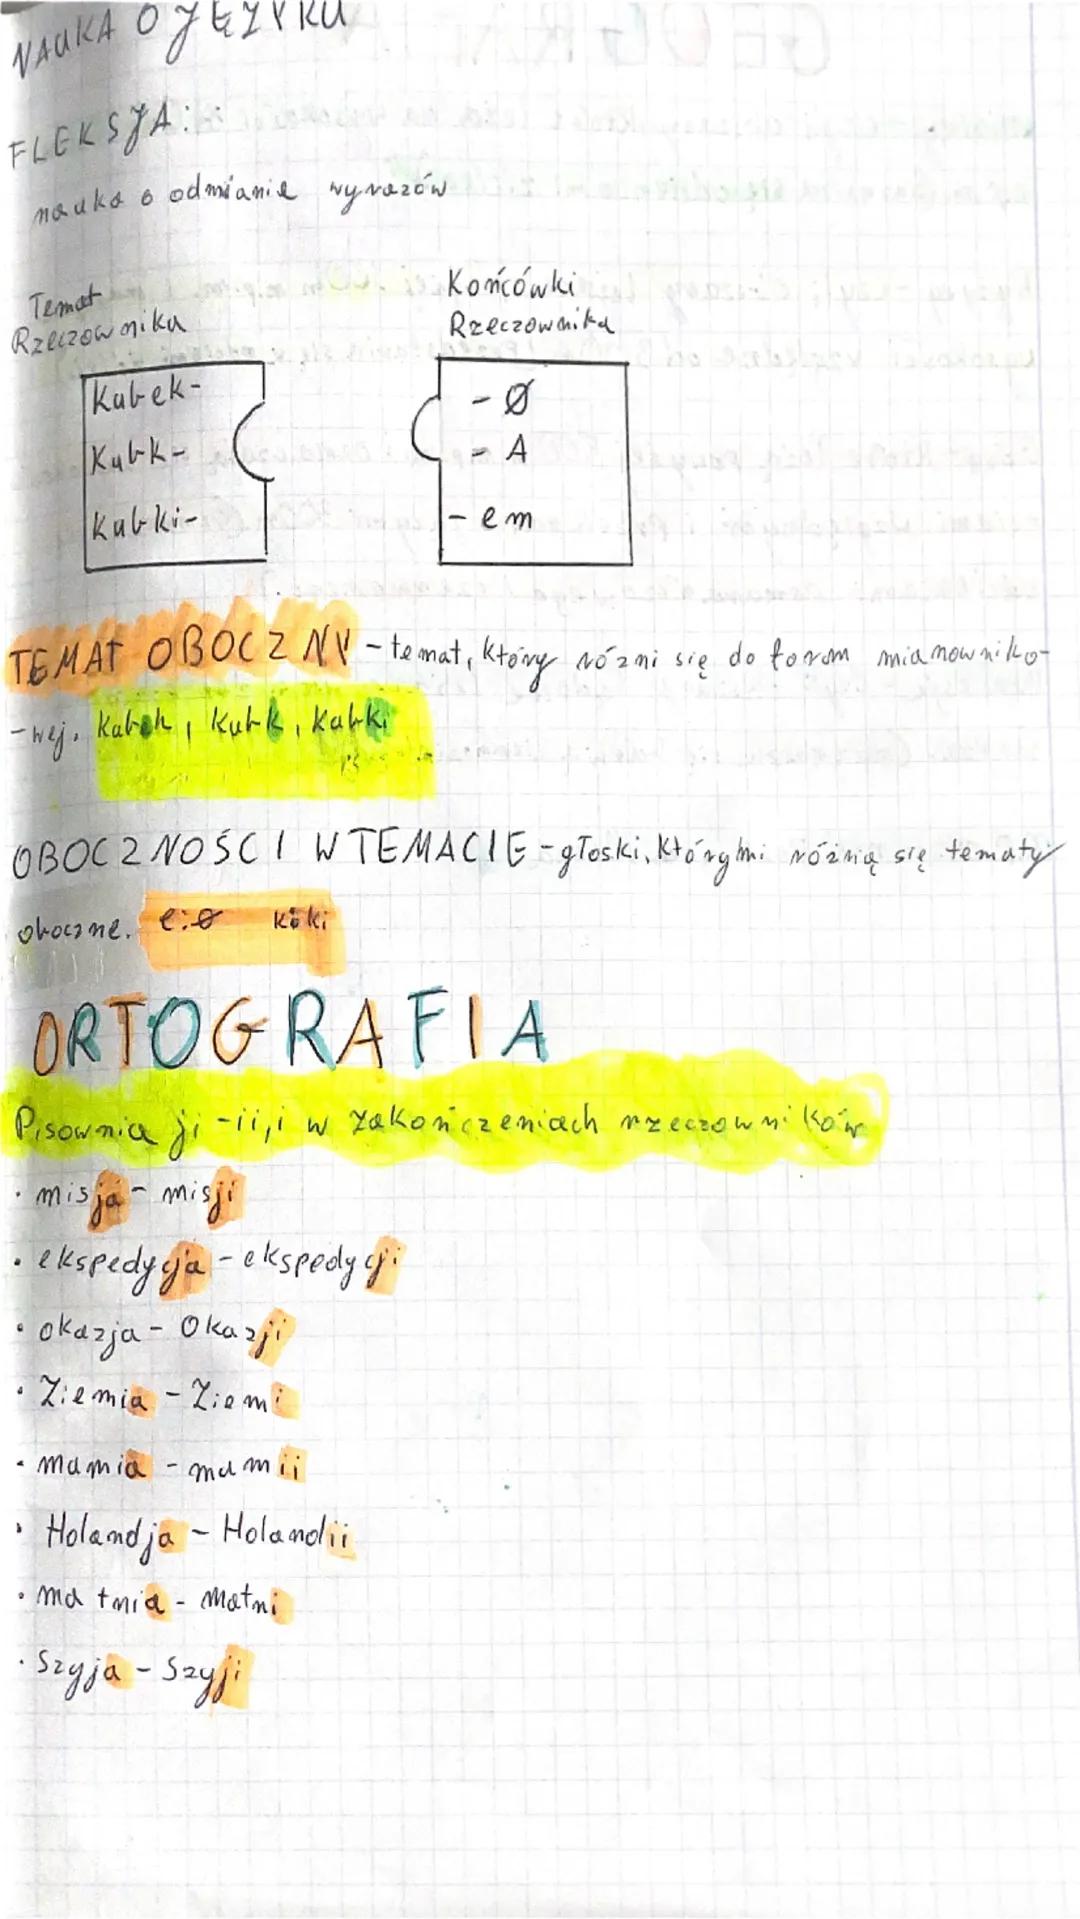 NAUKA O JĘZYKU
FLEKSJA:
nauka o odmianie wyrazów
Temat
Rzeczownika
Kubek-
Kubk-
Kubki-
Końcówki
Rzeczownika
- Ø
- A
- em
TEMAT OBOCZNY - temat, który różni się do form mianowniko-
-wej. Kubek, Kubk, Kubki
OBOCZNOŚCI W TEMACIE - głoski, którymi różnią się tematy
oboczne. e:Ø k:ki
ORTOGRAFIA
Pisownia ji -ii, i w zakończeniach rzeczowników
• misja - misji
• ekspedycja - ekspedycji
• okazja - Okazji
• Ziemia - Ziemi
• mumia - mumii
• Holandja - Holandii
• matnia - matni
• Szyja - Szyji